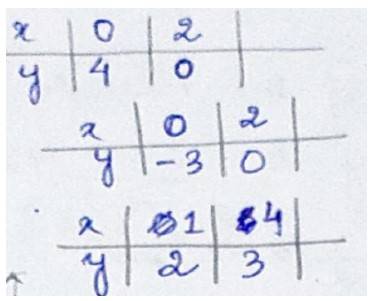 x | 0 | 2 |
y | 4 | 0 |
x | 0 | 2 |
y | -3 | 0 |
x | 1 | 4 |
y | 2 | 3 |